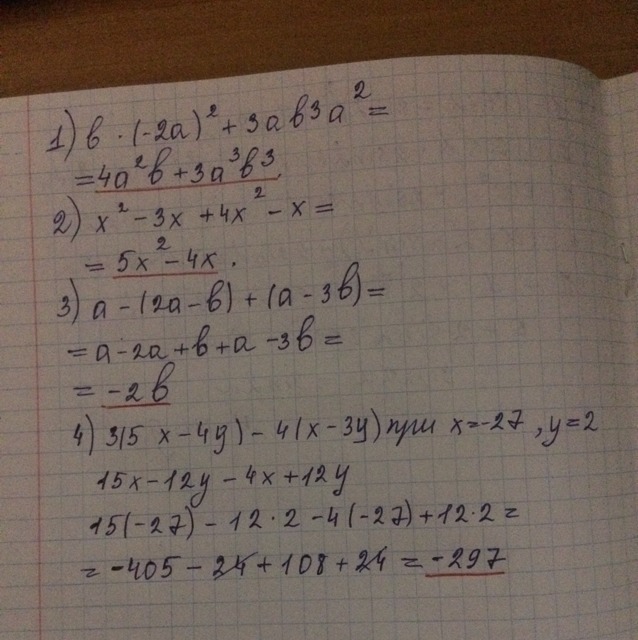 1) b · (-2a)² + 3ab3a² =
= 4a²b + 3a³b³.
2) x² - 3x + 4x² - x =
= 5x² - 4x.
3) a - (2a - b) + (a - 3b) =
= a - 2a + b + a - 3b =
= -2b
4) 3(5x - 4y) - 4(x - 3y) при x = -27, y = 2
15x - 12y - 4x + 12y
15(-27) - 12·2 - 4(-27) + 12·2 =
= -405 - 24 + 108 + 24 = -297